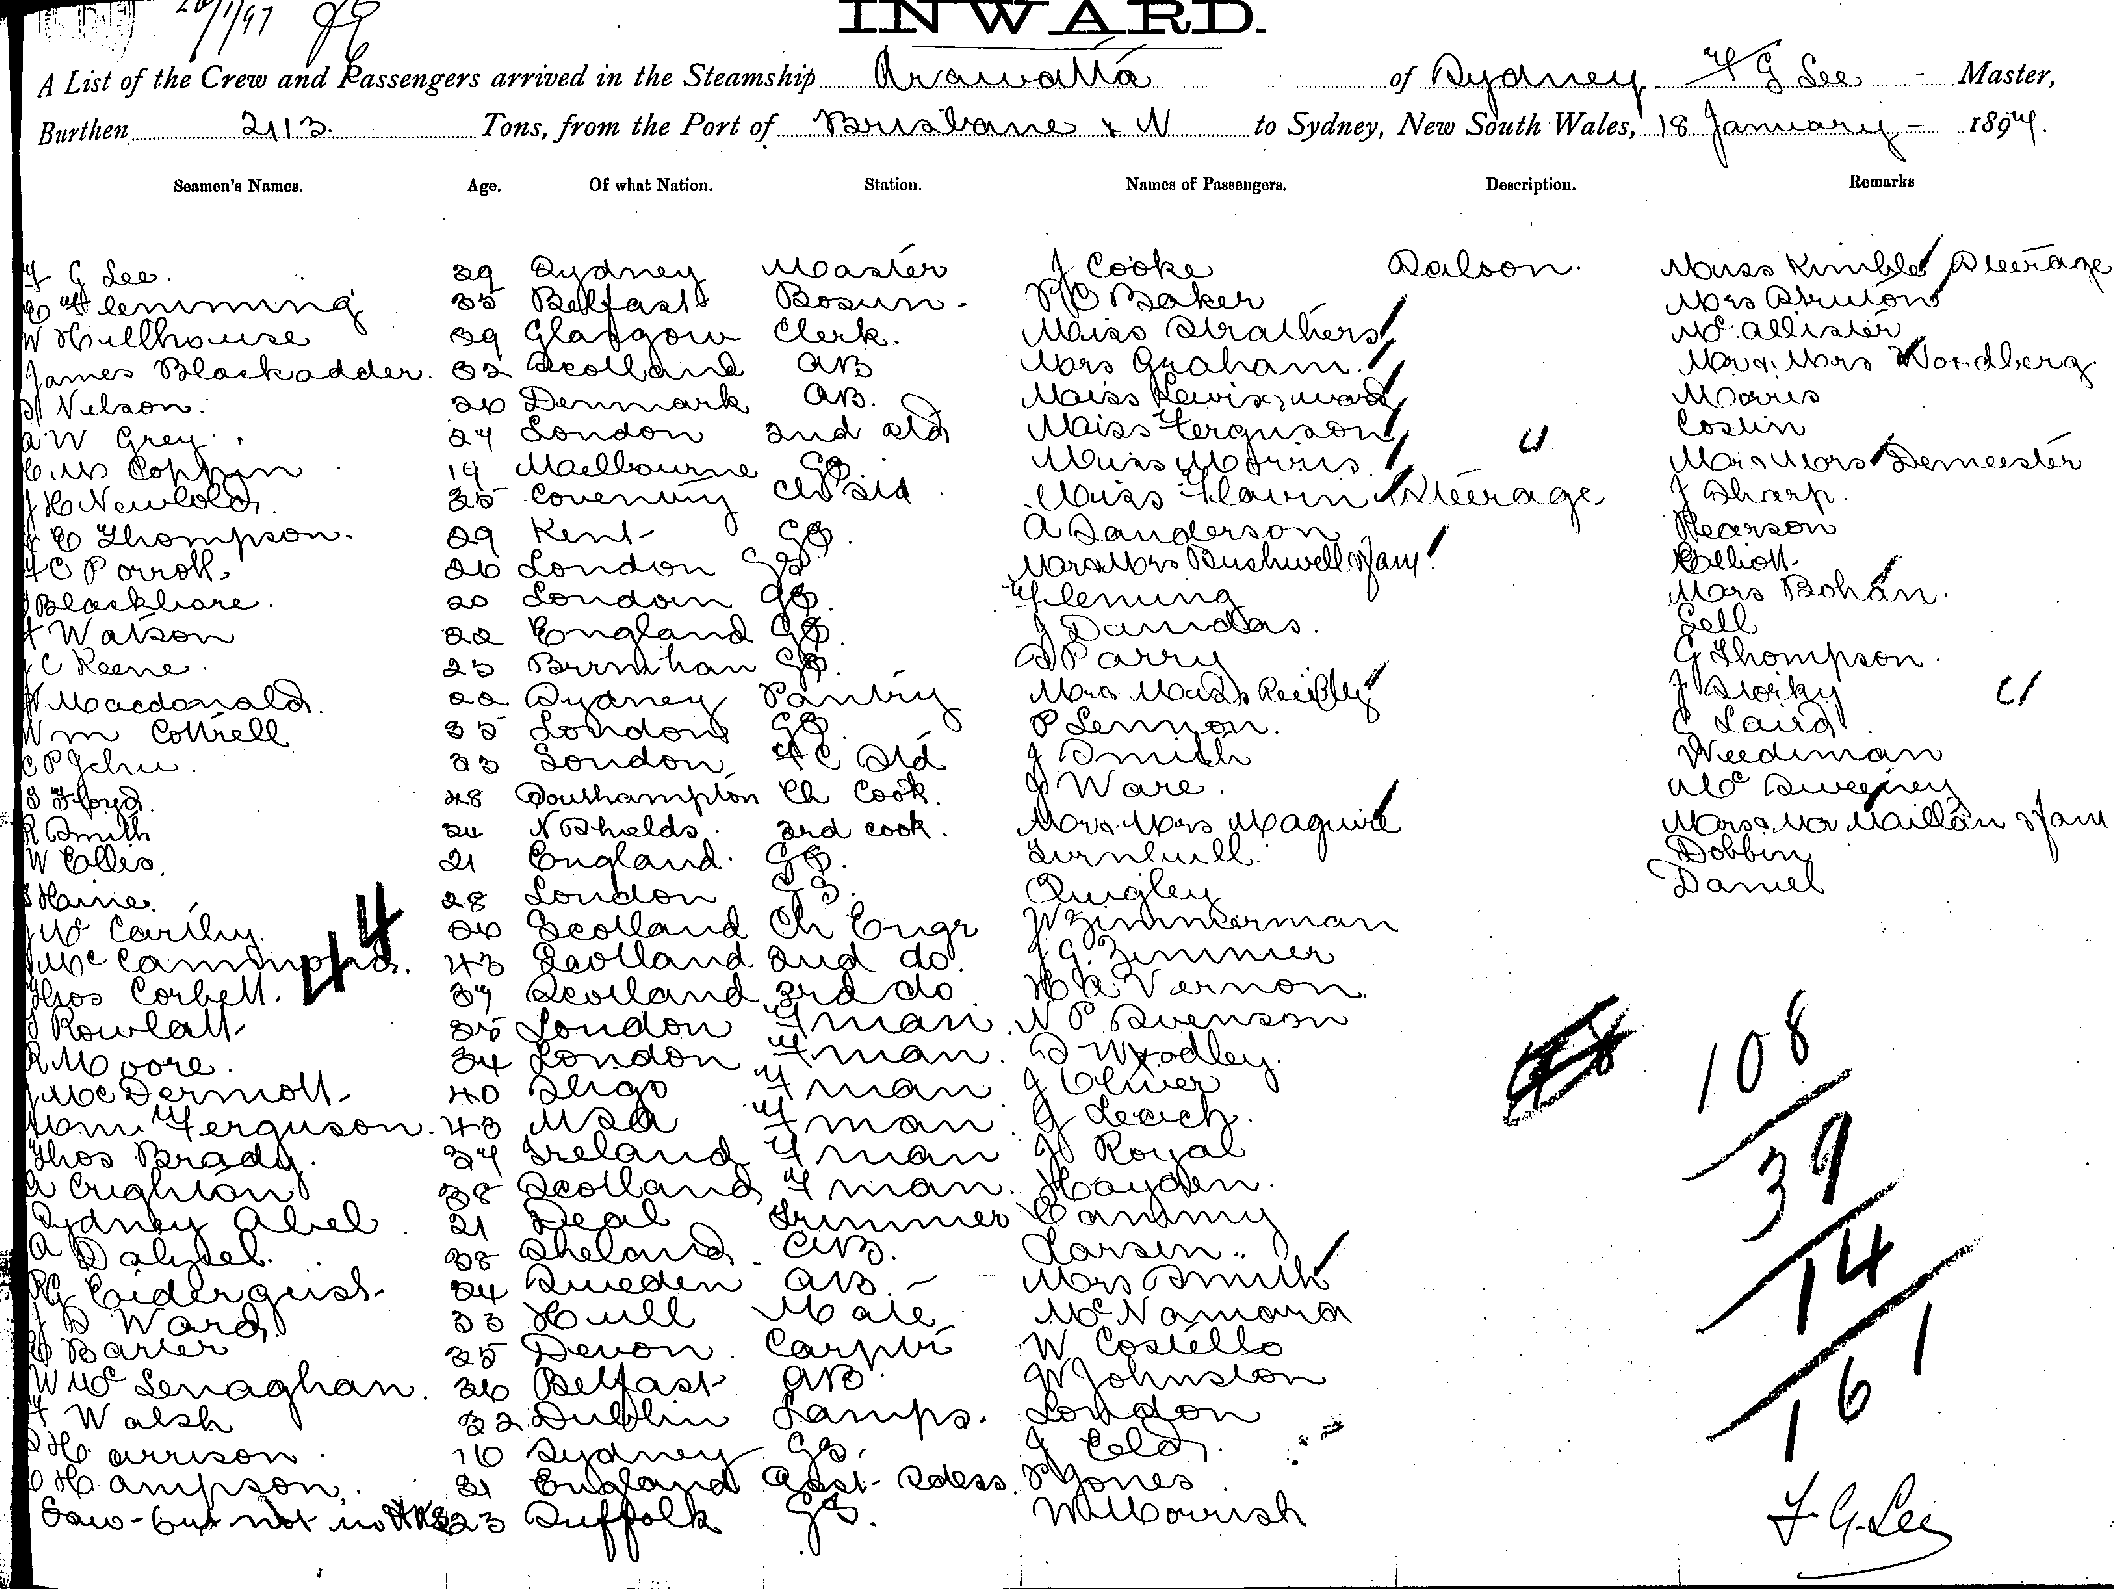 INWARD.
A List of the Crew and Passengers arrived in the Steamship Arawatta of Sydney G Lee Master,
Burthen 2113 Tons, from the Port of Brisbane & N to Sydney, New South Wales, 18 January 1897.
Seamen's Names. Age. Of what Nation. Station. Names of Passengers. Description. Remarks
G Lee. 39 Sydney Master J Cooke Saloon. Miss Kimble Steerage
Flemming 35 Belfast Bosun - Baker Mrs
W Hillhouse 39 Glasgow Clerk. Miss Strathers Mc Allister
James Blackadder. 32 Scotland AB Mrs Graham. Mr & Mrs Wordberg
Nelson. 26 Denmark AB. Miss Morris
A W Grey. 24 London 2nd Std Miss Ferguson " Costin
Coppin 19 Melbourne GS Miss Morris Mr & Mrs Demeester
J H Newbold. 35 Coventry Std Miss Flavin Steerage J Sharp.
E Thompson. 29 Kent GS. A Sanderson Pearson
26 London GS Mr & Mrs Bushwell & fam Elliott
20 London GS. Fleming Mrs Bohan.
Watson 22 England GS. J Dundas. Sell
C Keene. 23 GS. Parry G Thompson.
Macdonald. 22 Sydney Pantry Mr & Miss Reilly J "
Wm Cottrell 35 London GS. P Lennon. C Laird
33 London FC Std J Smith Weediman
Floyd. 48 Southampton Ch Cook. J Ware. Mc Sweeney
R Smith 24 N Shields. 3rd cook. Mr & Mrs Maguire & fam
W Elles. 21 England. GS. Turnbull. Dobbin
28 London GS. Quigley Daniel
J McCarthy. Scotland Ch Engr W Zimmerman
44
J Mc 43 Scotland 2nd do. J G. Zimmer
Thos Corbett. 37 Scotland 3rd do H Vernon.
Rowlatt 35 London Fman. N P Svenson
R Moore. 34 London Fman. Woodley.
J McDermott 40 Sligo Fman J Oliver
Ferguson. 43 USA Fman Leach.
Thos Brady. 37 Ireland Fman Royal
A Crighton 38 Scotland Fman. Hayden.
Sydney Abel 21 Deal Trimmer Canny
A Dalziel. 38 Shetland AB. Larsen.
24 Sweden AB - Mrs Smith
J Ward. 33 Hull Mate McNamara
Barter 25 Devon. Carptr W Costello
W Mc Lenaghan. 36 Belfast AB. W Johnston
Walsh 32 Dublin Lamps. London
Harrison. 16 Sydney GS. J
Hampson. 31 England Asst Sdess. Jones
Saw - but not in 23 Suffolk GS. W Mourish
108
39
14
161
F. G. Lee